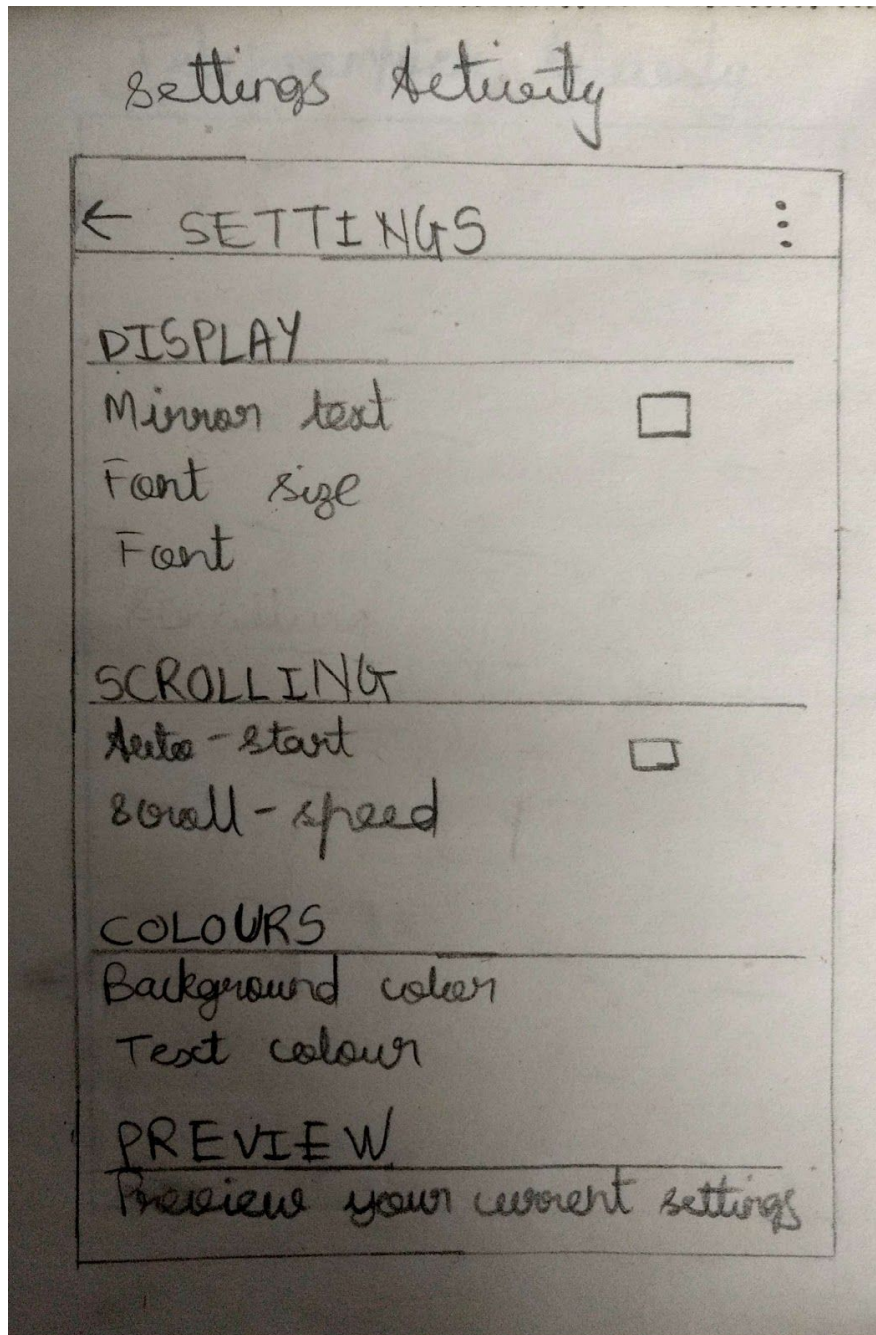 Settings Activity
← SETTINGS ⋮
DISPLAY
Mirror text
Font size
Font
SCROLLING
Auto-start
Scroll-speed
COLOURS
Background color
Text colour
PREVIEW
Preview your current settings